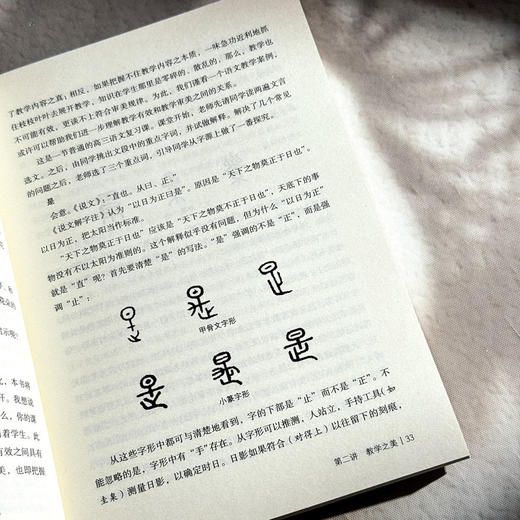 了教学内容之真；相反，如果把握不住教学内容之本质，一味急功近利地抓
住枝枝叶叶去展开教学，知识在学生那里是零碎的、散乱的，那么，教学也
不可能有效，更谈不上符合审美规律。为此，我们谨看一个语文教学案例，
或许可以帮助我们进一步理解教学有效和教学审美之间的关系。
这是一节普通的高三语文复习课。课堂开始，老师先请同学读两遍文言
选文。之后，由同学挑出文段中的重点字词，并试做解释。解决了几个常见
的问题之后，老师选了三个重点词，引导同学从字源上做了一番探究。
是
会意。《说文》：“直也。从日、正。”
《说文解字注》认为“以日为正曰是”。原因是“天下之物莫正于日也”。
以日为正，把太阳当作标准。
“天下之物莫正于日也”应该是“天下之物莫不正于日也”，天底下的事
物没有不以太阳为准则的。这个解释似乎没有问题，但为什么“以日为正”
就是“直”呢？首先要清楚“是”的写法。“是”强调的不是“正”，而是强
调“止”：
甲骨文字形
小篆字形
从这些字形中都可与清楚地看到，字的下部是“止”而不是“正”。不
能忽略的是，字形中有“手”存在。从字形可以推测，人站立，手持工具（如
圭臬）测量日影，以确定时日。日影如果符合（对得上）以往留下的刻痕，
第二讲 教学之美 | 33
本书将
开。我想说
么，你的课
着学生。此
有效之间具有
美，也即把握